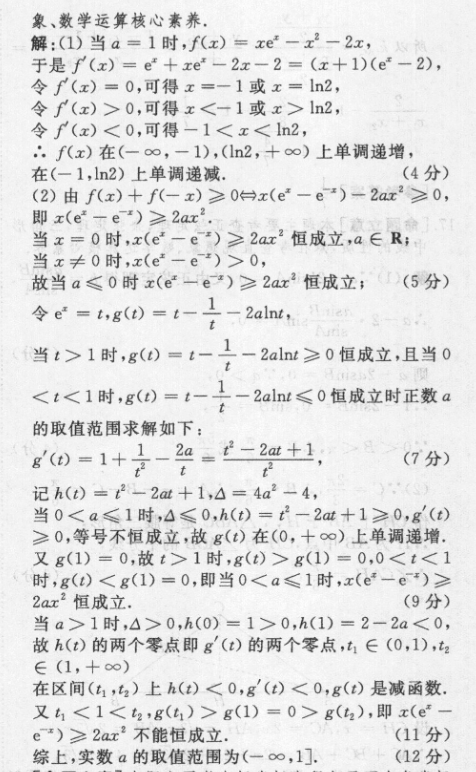 象、数学运算核心素养.
解:(1)当 a = 1 时,f(x) = xeˣ − x² − 2x,
于是 f′(x) = eˣ + xeˣ − 2x − 2 = (x+1)(eˣ − 2),
令 f′(x) = 0,可得 x = −1 或 x = ln2,
令 f′(x) > 0,可得 x < −1 或 x > ln2,
令 f′(x) < 0,可得 −1 < x < ln2,
∴ f(x) 在(−∞,−1),(ln2,+∞)上单调递增,
在(−1,ln2)上单调递减. (4分)
(2)由 f(x) + f(−x) ≥ 0⇔x(eˣ − e⁻ˣ) − 2ax² ≥ 0,
即 x(eˣ − e⁻ˣ) ≥ 2ax².
当 x = 0 时,x(eˣ − e⁻ˣ) ≥ 2ax² 恒成立,a ∈ R;
当 x ≠ 0 时,x(eˣ − e⁻ˣ) > 0,
故当 a ≤ 0 时 x(eˣ − e⁻ˣ) ≥ 2ax² 恒成立; (5分)
令 eˣ = t,g(t) = t − 1/t − 2alnt,
当 t > 1 时,g(t) = t − 1/t − 2alnt ≥ 0 恒成立,且当 0
< t < 1 时,g(t) = t − 1/t − 2alnt ≤ 0 恒成立时正数 a
的取值范围求解如下:
g′(t) = 1 + 1/t² − 2a/t = (t² − 2at + 1)/t², (7分)
记 h(t) = t² − 2at + 1,Δ = 4a² − 4,
当 0 < a ≤ 1 时,Δ ≤ 0,h(t) = t² − 2at + 1 ≥ 0,g′(t)
≥ 0,等号不恒成立,故 g(t) 在(0,+∞)上单调递增.
又 g(1) = 0,故 t > 1 时,g(t) > g(1) = 0,0 < t < 1
时,g(t) < g(1) = 0,即当 0 < a ≤ 1 时,x(eˣ − e⁻ˣ) ≥
2ax² 恒成立. (9分)
当 a > 1 时,Δ > 0,h(0) = 1 > 0,h(1) = 2 − 2a < 0,
故 h(t) 的两个零点即 g′(t) 的两个零点,t₁ ∈ (0,1),t₂
∈ (1,+∞)
在区间(t₁,t₂)上 h(t) < 0,g′(t) < 0,g(t) 是减函数.
又 t₁ < 1 < t₂,g(t₁) > g(1) = 0 > g(t₂),即 x(eˣ −
e⁻ˣ) ≥ 2ax² 不能恒成立. (11分)
综上,实数 a 的取值范围为(−∞,1]. (12分)